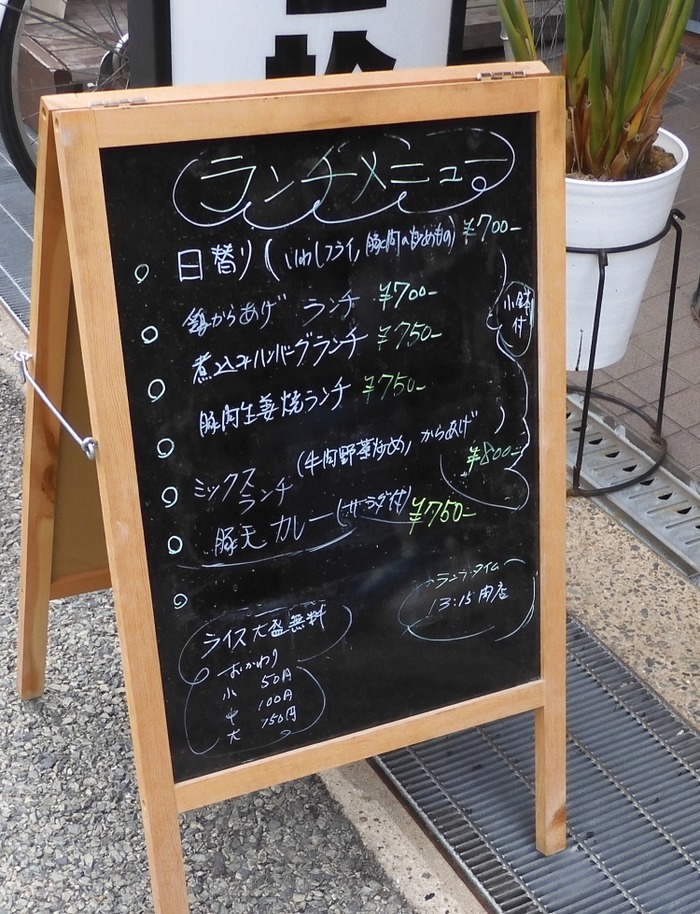 ランチメニュー
日替り(いわしフライ, 豚肉の炒めもの) ¥700-
鶏からあげ ランチ ¥700-
煮込みハンバーグランチ ¥750-
小鉢付
豚肉生姜焼ランチ ¥750-
ミックスランチ (牛肉野菜炒め, からあげ) ¥800-
豚天カレー(サラダ付) ¥750-
ランチタイム
13:15閉店
ライス大盛無料
おかわり
小 50円
中 100円
大 150円